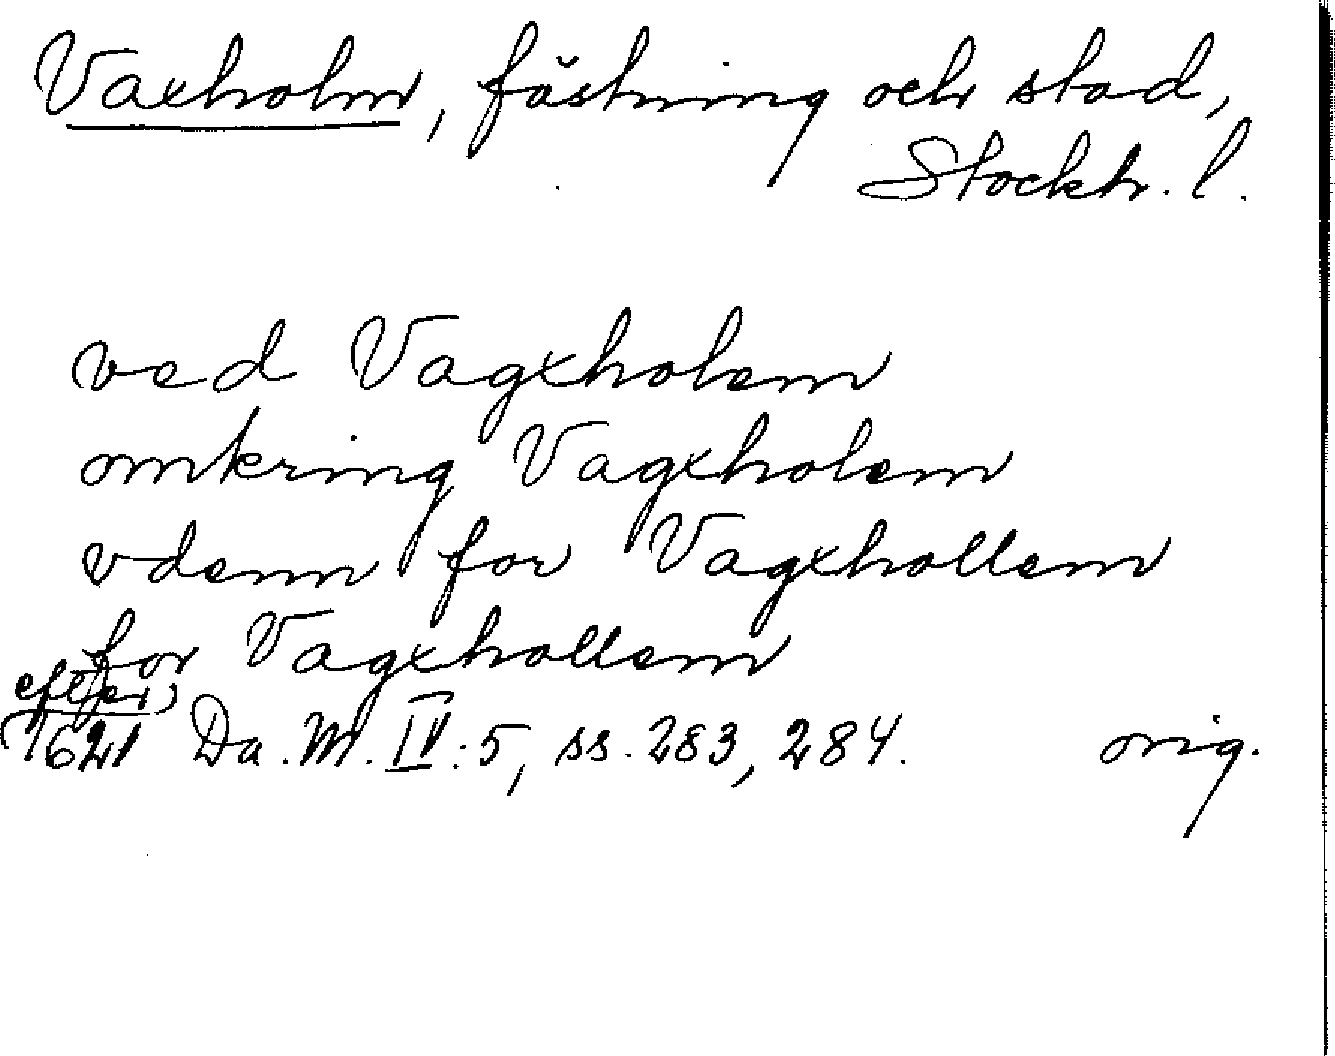 Vaxholm, fästning och stad,
Stockh. l.
ved Vagxholem
omkring Vagxholem
vdenn for Vagxhollem
for Vagxhollem
efter
1621 Da. M. IV: 5, ss. 283, 284. orig.